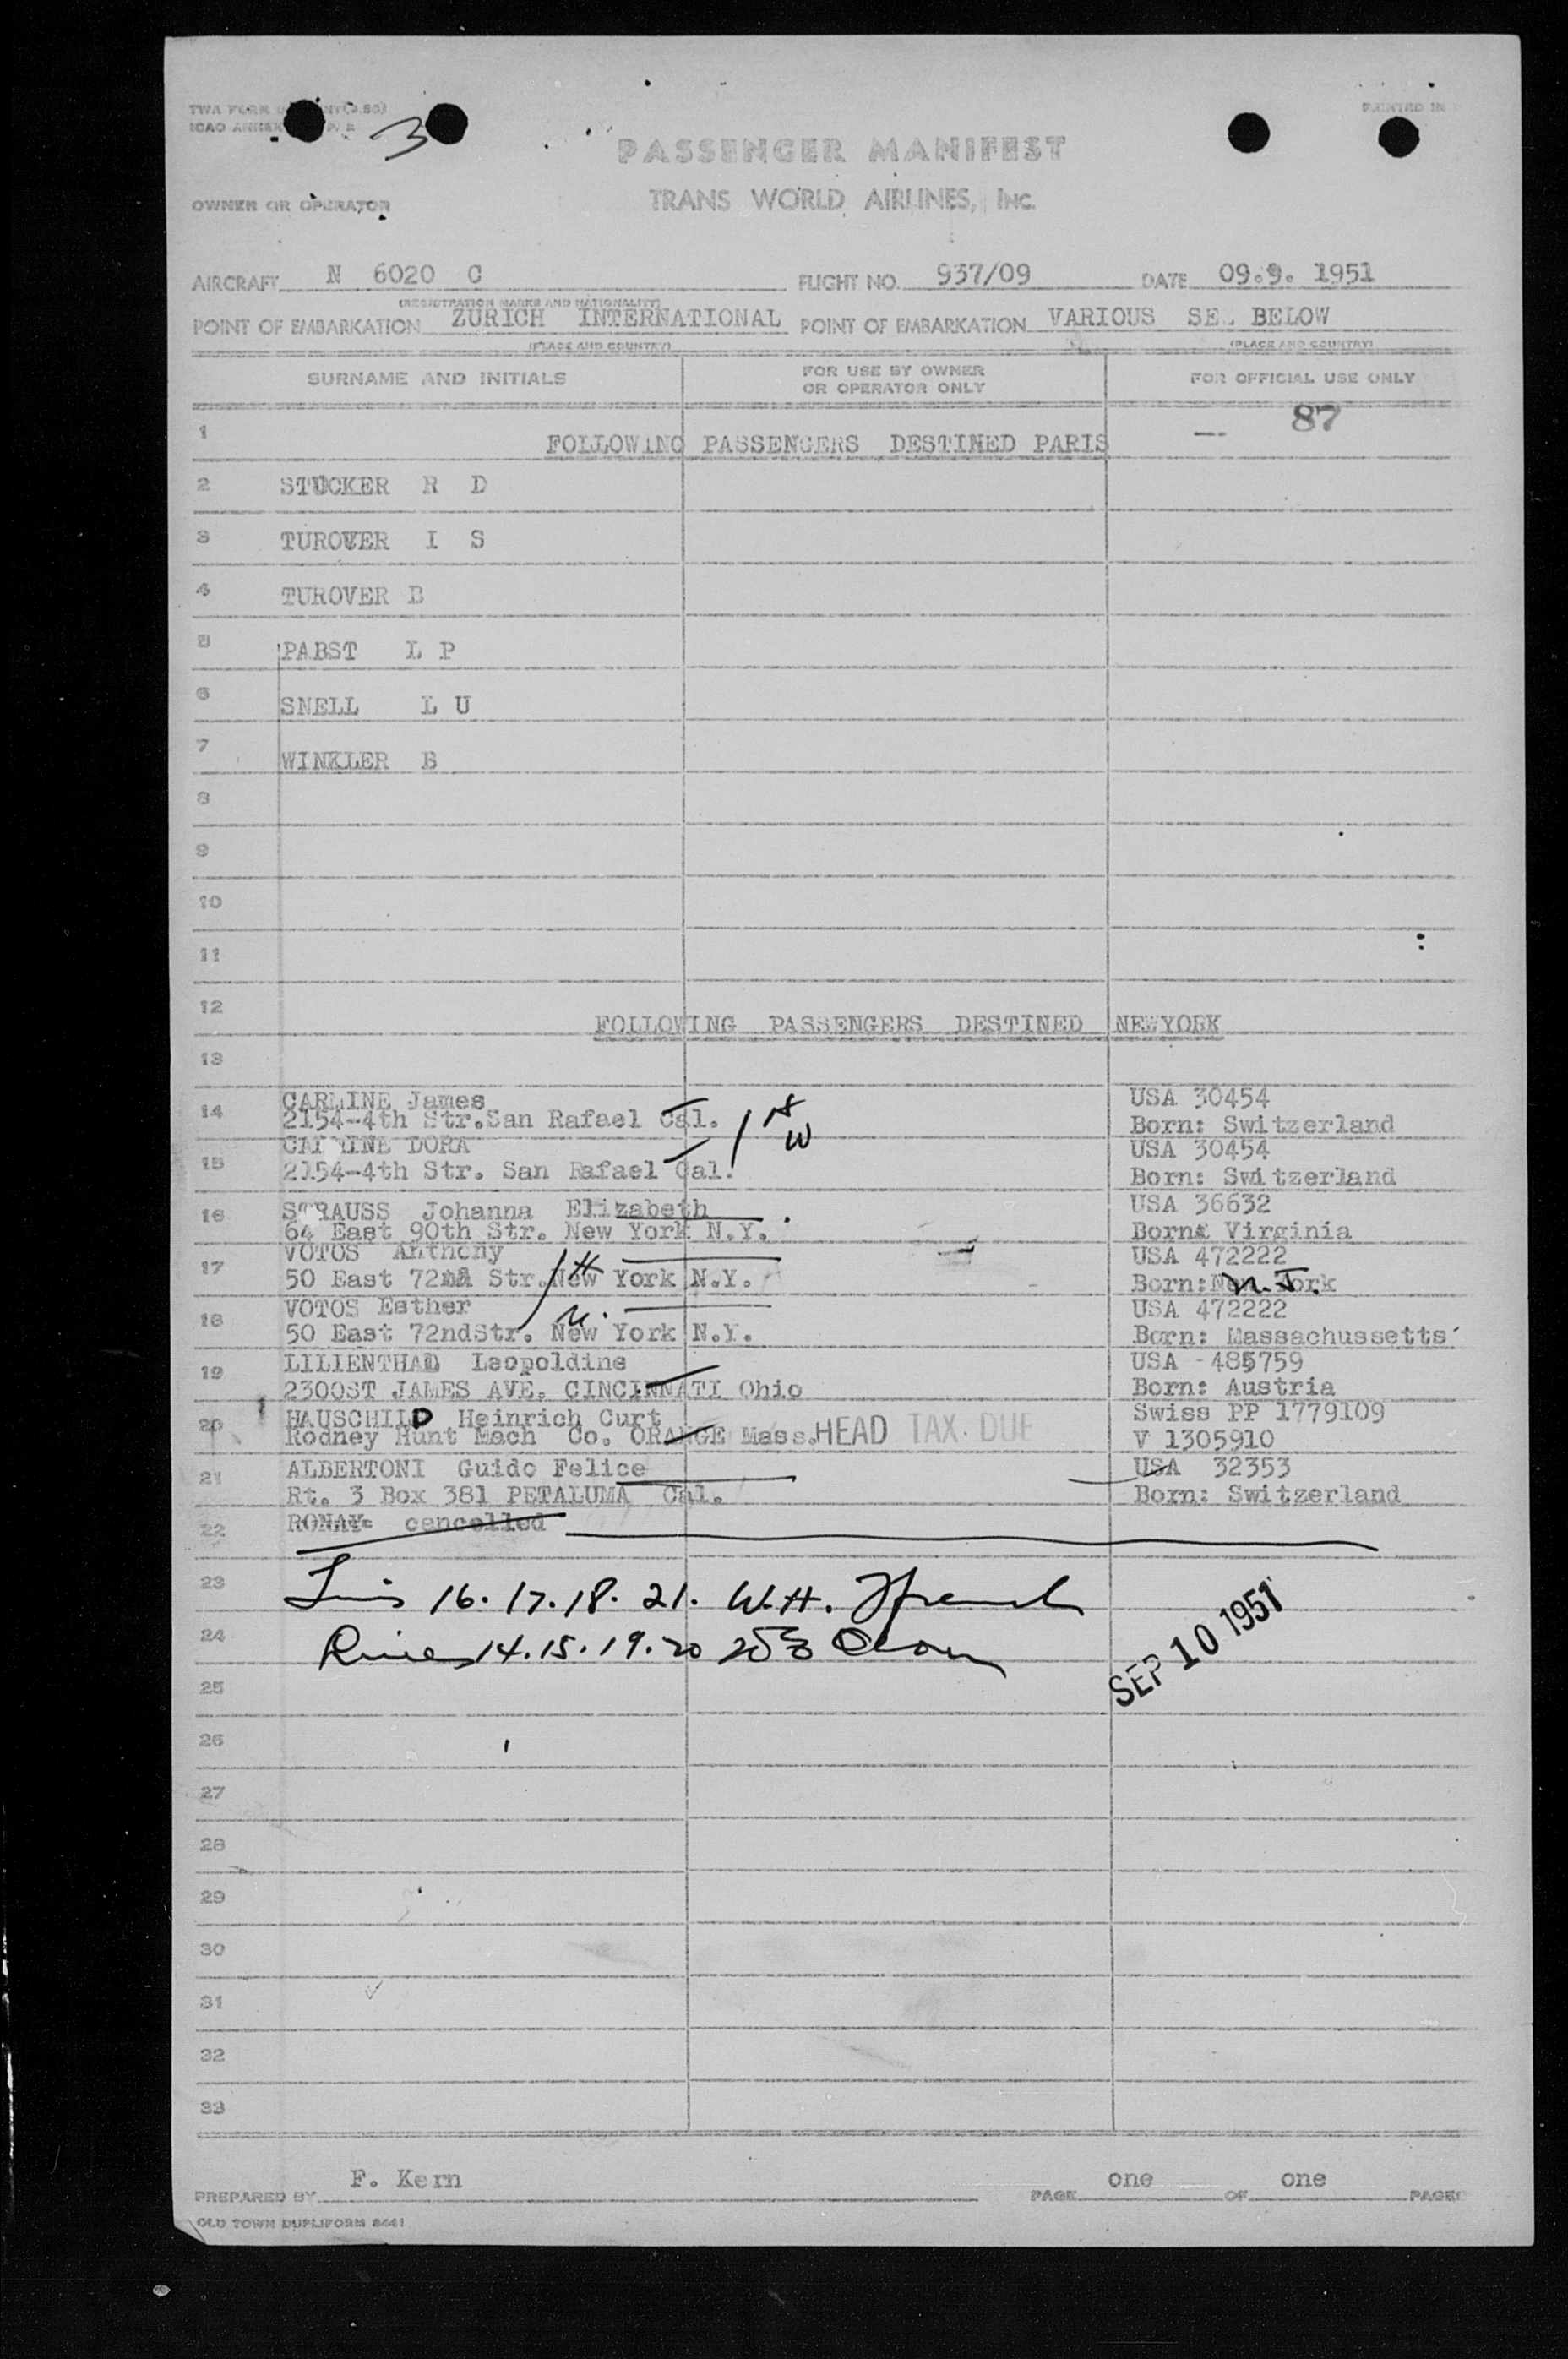 TWA FORM
PRINTED IN
ICAO ANNEX
3
PASSENGER MANIFEST
OWNER OR OPERATOR
TRANS WORLD AIRLINES, INC.
AIRCRAFT N 6020 C FLIGHT NO. 937/09 DATE 09.9. 1951
(REGISTRATION MARKS AND NATIONALITY)
POINT OF EMBARKATION ZURICH INTERNATIONAL POINT OF EMBARKATION VARIOUS SE BELOW
(PLACE AND COUNTRY) (PLACE AND COUNTRY)
SURNAME AND INITIALS FOR USE BY OWNER OR OPERATOR ONLY FOR OFFICIAL USE ONLY
87
1 FOLLOWING PASSENGERS DESTINED PARIS
2 STUCKER R D
3 TUROVER I S
4 TUROVER B
5 PABST L P
6 SNELL L U
7 WINKLER B
8
9
10
11
12 FOLLOWING PASSENGERS DESTINED NEWYORK
13
14 CARLINE James USA 30454
2154-4th Str.San Rafael Cal. Born: Switzerland
15 DORA USA 30454
2154-4th Str. San Rafael Cal. Born: Switzerland
16 STRAUSS Johanna Elizabeth USA 36632
64 East 90th Str. New York N.Y. Born: Virginia
17 VOTOS Anthony USA 472222
50 East 72nd Str. New York N.Y. Born: N.J.
18 VOTOS Esther USA 472222
50 East 72ndStr. New York N.Y. Born: Massachussetts
19 LILIENTHAL Leopoldine USA - 485759
2300ST JAMES AVE. CINCINNATI Ohio Born: Austria
20 HAUSCHILD Heinrich Curt Swiss PP 1779109
Rodney Hunt Mach Co. ORANGE Mass. HEAD TAX DUE V 1305910
21 ALBERTONI Guido Felice USA 32353
Rt. 3 Box 381 PETALUMA Cal. Born: Switzerland
22 RONAY cancelled
23 16. 17. 18. 21. W.H.
24 14. 15. 19. 20
SEP 10 1951
25
26
27
28
29
30
31
32
33
PREPARED BY F. Kern PAGE one OF one PAGES
OLD TOWN DUPLIFORM 8441